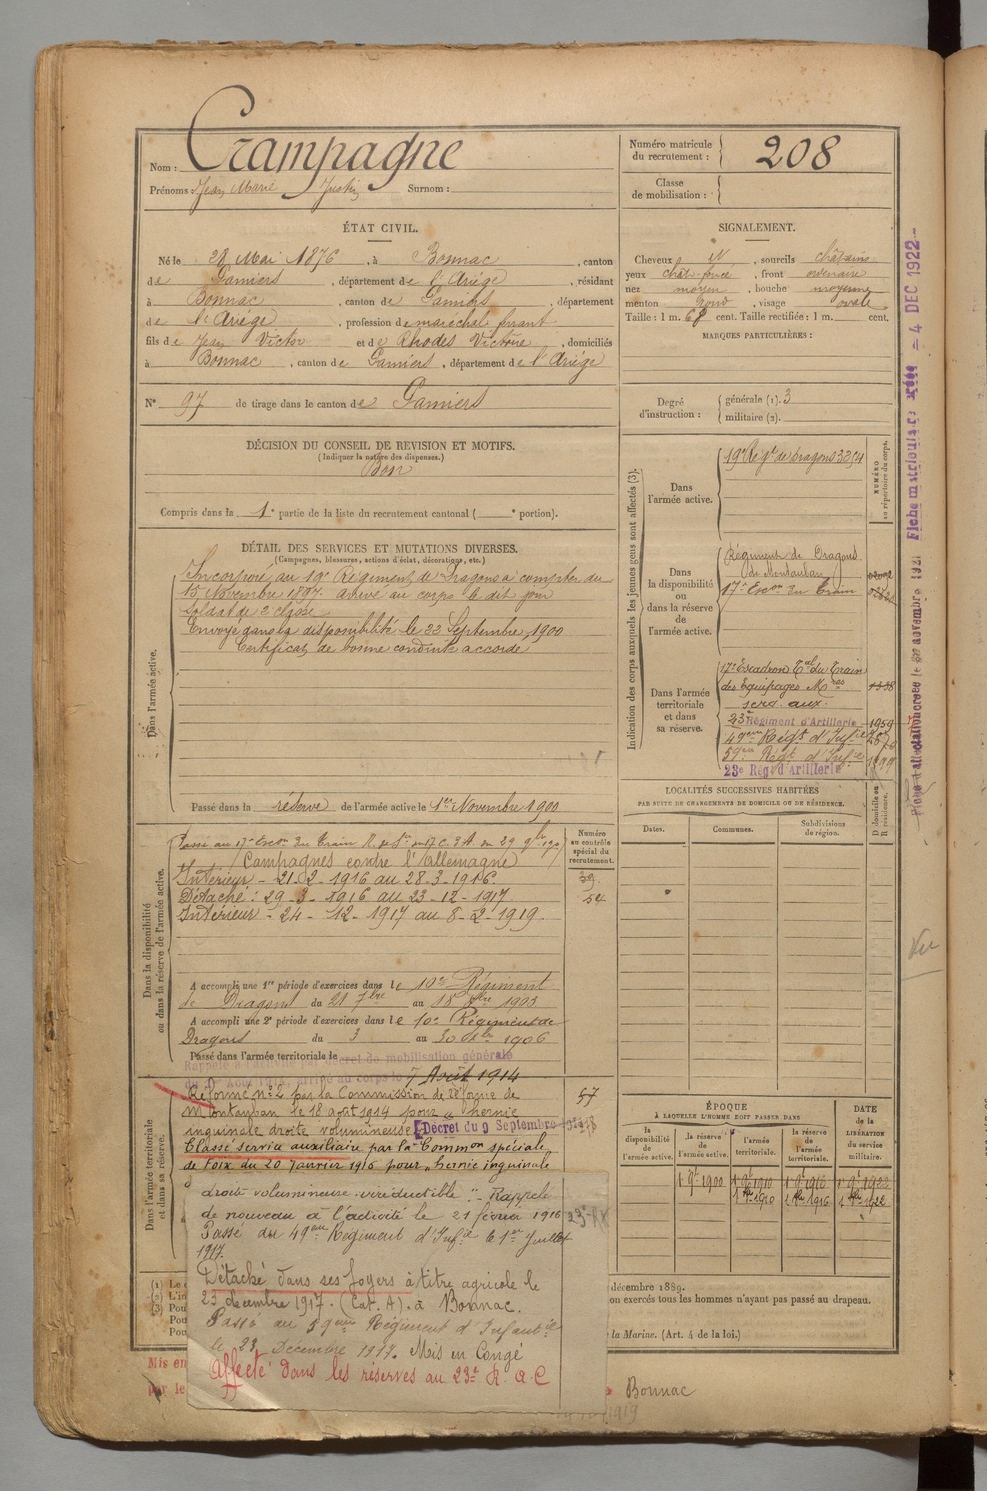 Nom : Crampagne
Prénoms : Jean Marie Justin Surnom :
Numéro matricule du recrutement : 208
Classe de mobilisation :
ÉTAT CIVIL.
Né le 28 Mai 1876, à Bonnac, canton
de Pamiers, département de l'Ariège, résidant
à Bonnac, canton de Pamiers, département
de l'Ariège, profession de maréchal ferrant
fils de Jean Victor et de Rhodes Victoire, domiciliés
à Bonnac, canton de Pamiers, département de l'Ariège
N° 97 de tirage dans le canton de Pamiers
SIGNALEMENT.
Cheveux N, sourcils châtains
yeux chât. foncé, front ordinaire
nez moyen, bouche moyenne
menton rond, visage ovale
Taille : 1 m. 68 cent. Taille rectifiée : 1 m. cent.
MARQUES PARTICULIÈRES :
Degré d'instruction : générale (1). 3
militaire (2).
DÉCISION DU CONSEIL DE REVISION ET MOTIFS.
(Indiquer la nature des dispenses.)
Bon
Compris dans la 1e partie de la liste du recrutement cantonal ( e portion).
DÉTAIL DES SERVICES ET MUTATIONS DIVERSES.
(Campagnes, blessures, actions d'éclat, décorations, etc.)
Dans l'armée active.
Incorporé au 19e Régiment de Dragons à compter du
15 Novembre 1897. Arrivé au corps le dit jour
soldat de 2e classe.
Envoyé dans la disponibilité le 22 Septembre 1900
Certificat de bonne conduite accordé
Passé dans la réserve de l'armée active le 1er Novembre 1900
Indication des corps auxquels les jeunes gens sont affectés (3).
NUMÉRO au répertoire du corps.
Dans l'armée active.
19e Régt de Dragons 3354
Dans la disponibilité ou dans la réserve de l'armée active.
Régiment de Dragons
(de Montauban)
17e Escon du Train
Dans l'armée territoriale et dans sa réserve.
17e Escadron Tal du Train
des Equipages Mres 1338
serv. aux.
23e Régiment d'Artillerie 1959
49eme Régt d'Infie
59eme Régt d'Infie
23e Régt d'Artillerie
LOCALITÉS SUCCESSIVES HABITÉES
PAR SUITE DE CHANGEMENTS DE DOMICILE OU DE RÉSIDENCE.
Dates. Communes. Subdivisions de région. D domicile ou R résidence.
Dans la disponibilité ou dans la réserve de l'armée active.
Numéro au contrôle spécial du recrutement.
39
54
Campagnes contre l'Allemagne
Intérieur - 21-2-1916 au 28-3-1916
Détaché : 29-3-1916 au 23-12-1917
Intérieur - 24-12-1917 au 8-2-1919.
A accompli une 1re période d'exercices dans le 10e Régiment
de Dragons du 21 7bre au 18 8bre 1903
A accompli une 2e période d'exercices dans le 10e Régiment de
Dragons du 3 au 30 8bre 1906
Passé dans l'armée territoriale le
Rappelé à l'activité par décret de mobilisation générale
du 1er Août 1914, arrivé au corps le 7 Août 1914
Dans l'armée territoriale et dans sa réserve.
57
Réformé n° 2 par la Commission de réforme de
Montauban le 18 août 1914 pour « hernie
inguinale droite volumineuse » Décret du 9 Septembre 1914
Classé service auxiliaire par la Common spéciale
de Foix du 20 janvier 1916 pour « hernie inguinale
droite volumineuse irréductible » Rappelé
de nouveau à l'activité le 21 février 1916
Passé au 49eme Régiment d'Infie le 1er Juillet
1917.
Détaché dans ses foyers à titre agricole le
23 décembre 1917. (Cat. A). à Bonnac.
Passé au 59eme Régiment d'Infanterie
le 23 Décembre 1917. Mis en Congé
Affecté dans les réserves au 23e R.A.C
ÉPOQUE
À LAQUELLE L'HOMME DOIT PASSER DANS
DATE de la LIBÉRATION du service militaire.
la disponibilité de l'armée active.
la réserve de l'armée active.
l'armée territoriale.
la réserve de l'armée territoriale.
1 9bre 1900 1 9bre 1910 1 9bre 1916 1 9bre 1922
1 8bre 1910 1 8bre 1916 1 8bre 1922
(1) Le
(2) L'in
(3) Pou
Pou
décembre 1889.
on exercés tous les hommes n'ayant pas passé au drapeau.
la Marine. (Art. 4 de la loi.)
Mis en
par le
Bonnac
1919
Vu
Fiche matriculaire créée - 4 DEC 1922 -